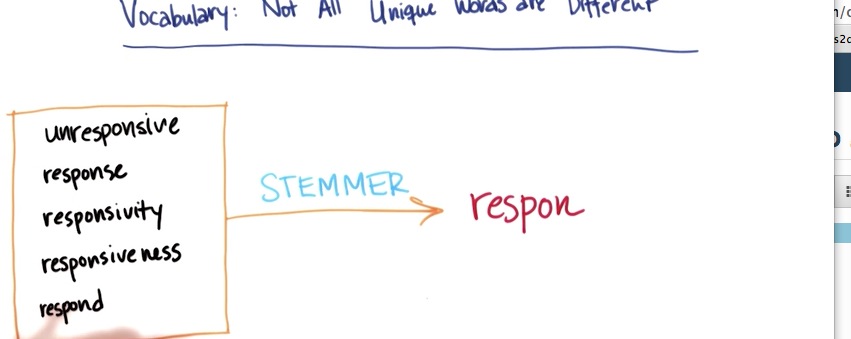 Vocabulary: Not All Unique Words are Different
unresponsive
response
responsivity
responsiveness
respond
STEMMER
respon